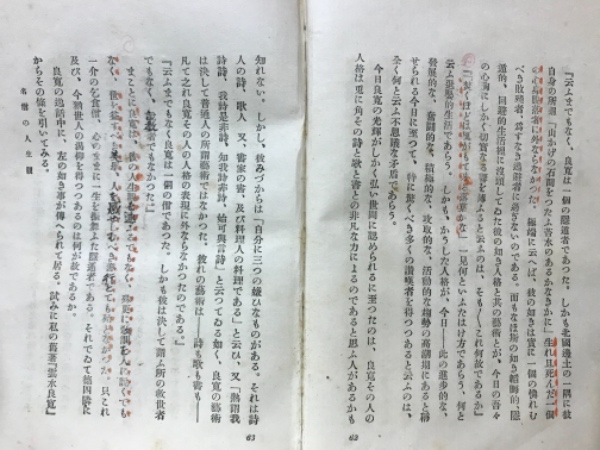 『云ふまでもなく、良寛は一個の隠遁者であつた。しかも北國邊土の一隅に彼
自身の所謂「山かげの石間をつたふ苔水のあるかなきかに」生れ且死んだ一個
外ならなかつた。極端に云へば、彼の如きは實に一個の憐れむ
べき敗殘者、爲すなき逃避者に過ぎないのである。而もなほ斯の如き
遁的、同避的生活裡に沒頭してゐた彼の如き人格と其の藝術とが、今日の吾々
の心胸にしかく切實なる響を傳ふると云ふのは、そも〳〵これ何故であるか』
一見何といふたはけ方であらう、何と
云ふ遊戯的生活であらう。しかも、かうした人格が、今日——此の進歩的な、
發展的な、奮鬪的な、積極的な、攻取的な、活動的な趨勢の高潮期にあると稱
せられる今日に至つて、特に驚くべき多くの讃嘆者を得つつあると云ふのは、
全く何と云ふ不思議な矛盾であらう。
今日良寛の光輝がしかく弘い世間に認められるに至つたのは、良寛その人の
人格は兎に角その詩と歌と書との非凡な力によるのであると思ふ人があるかも
62
知れない。しかし、彼みづからは『自分に三つの嫌ひなものがある。それは詩
人の詩、歌人の歌、書家の書、及び料理人の料理である』と云ひ、又『孰謂我
詩詩、我詩是非詩、知我詩非詩、始可與言詩』と云つてゐる如く、良寛の藝術
は決して普通人の所謂藝術ではなかつた。彼れの藝術は——詩も歌も書も——
凡て之れ良寛その人の人格の表現に外ならなかつたのである。』
『云ふまでもなく良寛は一個の僧であつた。しかも彼は決して謂ふ所の救世者
でもなく、宗教者でもなかつた』
まことに良寛は、
なく、
一介の乞食僧、心のままに一生を振舞ふた隠遁者である。それでゐて德四隣に
及び、今猶世人の渇仰を得つつあるのは何が故であるか。
良寛の逸話中に、左の如き事が傳へられて居る。試みに私の舊著『雲水良寛』
からその條を引いてみる。
名僧の人生觀
63